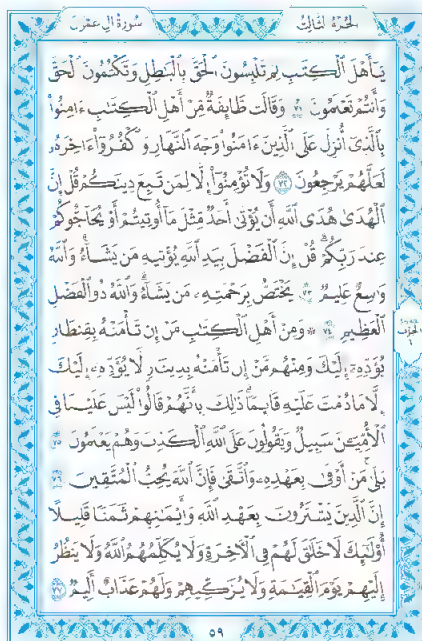 الجزء الثالث
سورة آل عمران
يَـٰٓأَهْلَ ٱلْكِتَـٰبِ لِمَ تَلْبِسُونَ ٱلْحَقَّ بِٱلْبَـٰطِلِ وَتَكْتُمُونَ ٱلْحَقَّ
وَأَنتُمْ تَعْلَمُونَ ٧١ وَقَالَت طَّآئِفَةٌ مِّنْ أَهْلِ ٱلْكِتَـٰبِ ءَامِنُوا۟
بِٱلَّذِىٓ أُنزِلَ عَلَى ٱلَّذِينَ ءَامَنُوا۟ وَجْهَ ٱلنَّهَارِ وَٱكْفُرُوٓا۟ ءَاخِرَهُۥ
لَعَلَّهُمْ يَرْجِعُونَ ٧٢ وَلَا تُؤْمِنُوٓا۟ إِلَّا لِمَن تَبِعَ دِينَكُمْ قُلْ إِنَّ
ٱلْهُدَىٰ هُدَى ٱللَّهِ أَن يُؤْتَىٰٓ أَحَدٌ مِّثْلَ مَآ أُوتِيتُمْ أَوْ يُحَآجُّوكُمْ
عِندَ رَبِّكُمْ ۗ قُلْ إِنَّ ٱلْفَضْلَ بِيَدِ ٱللَّهِ يُؤْتِيهِ مَن يَشَآءُ ۗ وَٱللَّهُ
وَٰسِعٌ عَلِيمٌ ٧٣ يَخْتَصُّ بِرَحْمَتِهِۦ مَن يَشَآءُ ۗ وَٱللَّهُ ذُو ٱلْفَضْلِ
ٱلْعَظِيمِ ٧٤ ۞ وَمِنْ أَهْلِ ٱلْكِتَـٰبِ مَنْ إِن تَأْمَنْهُ بِقِنطَارٍ
يُؤَدِّهِۦٓ إِلَيْكَ وَمِنْهُم مَّنْ إِن تَأْمَنْهُ بِدِينَارٍ لَّا يُؤَدِّهِۦٓ إِلَيْكَ
إِلَّا مَا دُمْتَ عَلَيْهِ قَآئِمًا ۗ ذَٰلِكَ بِأَنَّهُمْ قَالُوا۟ لَيْسَ عَلَيْنَا فِى
ٱلْأُمِّيِّـۧنَ سَبِيلٌ وَيَقُولُونَ عَلَى ٱللَّهِ ٱلْكَذِبَ وَهُمْ يَعْلَمُونَ ٧٥
بَلَىٰ مَنْ أَوْفَىٰ بِعَهْدِهِۦ وَٱتَّقَىٰ فَإِنَّ ٱللَّهَ يُحِبُّ ٱلْمُتَّقِينَ ٧٦
إِنَّ ٱلَّذِينَ يَشْتَرُونَ بِعَهْدِ ٱللَّهِ وَأَيْمَـٰنِهِمْ ثَمَنًا قَلِيلًا
أُو۟لَـٰٓئِكَ لَا خَلَـٰقَ لَهُمْ فِى ٱلْـَٔاخِرَةِ وَلَا يُكَلِّمُهُمُ ٱللَّهُ وَلَا يَنظُرُ
إِلَيْهِمْ يَوْمَ ٱلْقِيَـٰمَةِ وَلَا يُزَكِّيهِمْ وَلَهُمْ عَذَابٌ أَلِيمٌ ٧٧
٥٩